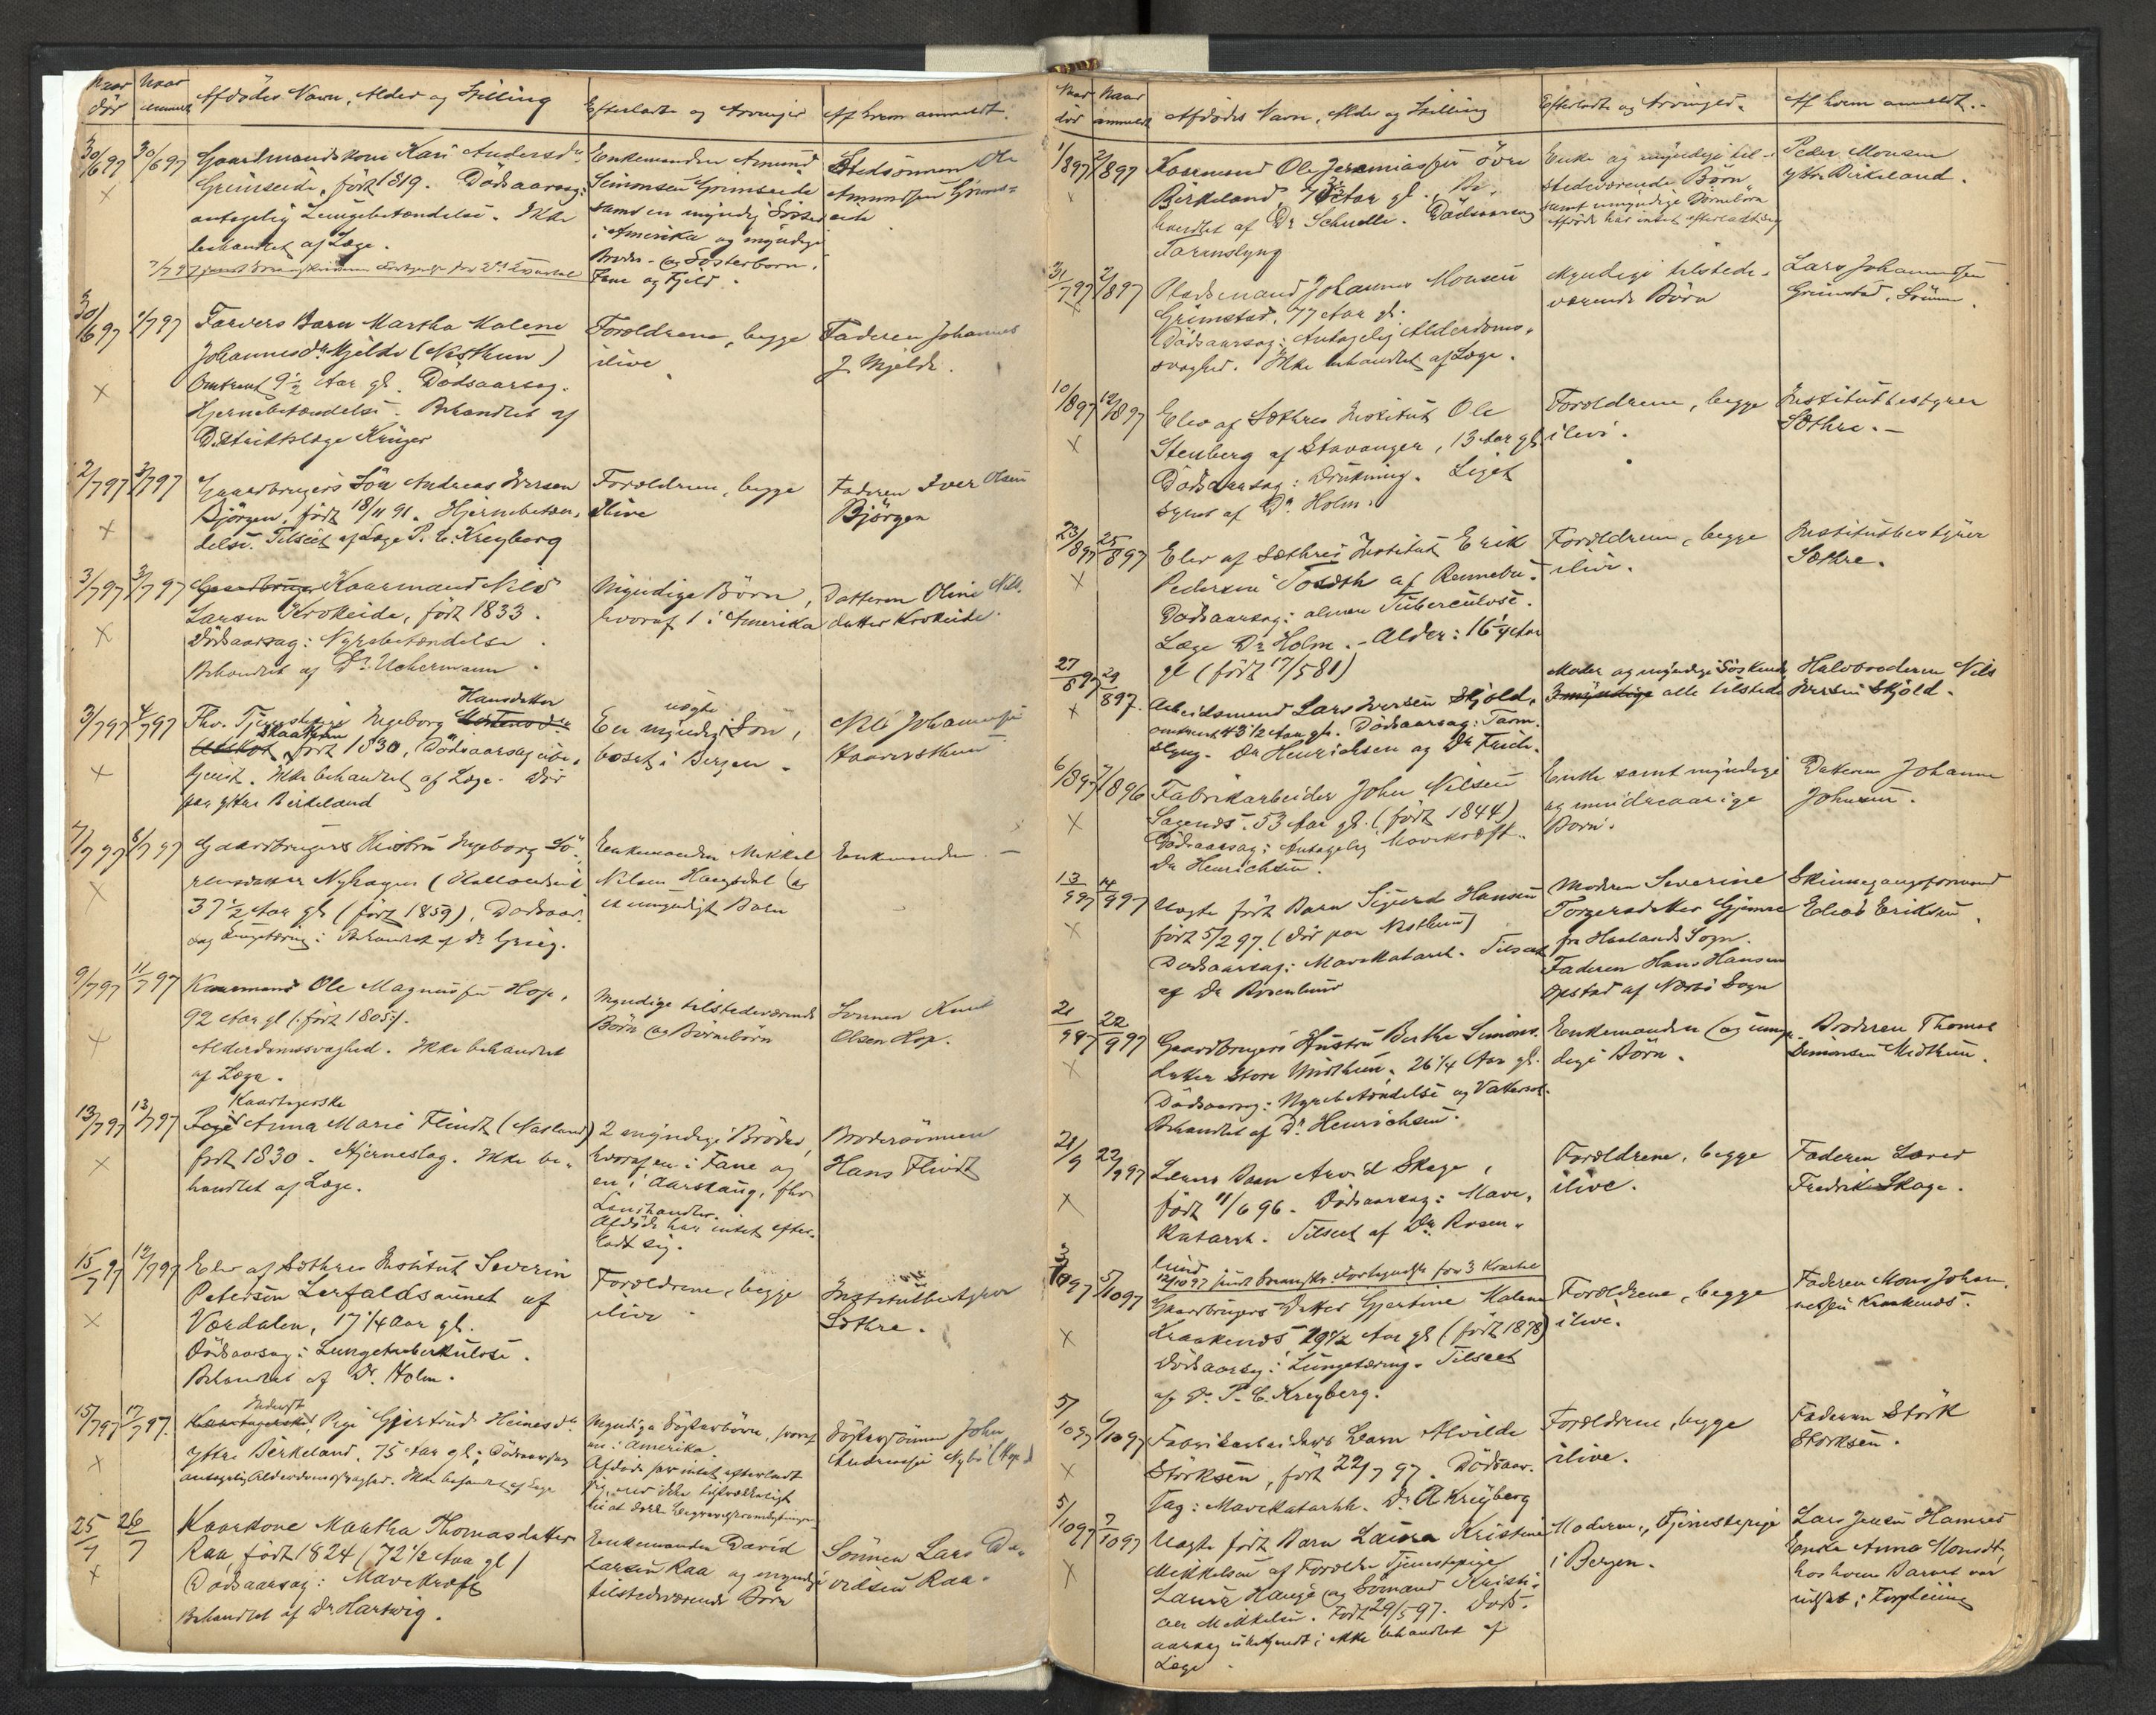 Naar
dör
Naar
anmeldt
Afdödes Navn, Alder og Stilling
Efterladte og Arvinger
Af hvem anmeldt.
30/6 97
30/6 97
Gaardmandskone Kari Andersdr
Grimseide, født 1819. Dödsaarsag:
antagelig Lungebetændelse. Ikke
behandlet af Læge.
Enkemanden Amund
Simonsen Grimseide
samt en myndig Söster
i Amerika og myndige
Broder- og Sösterbörn,
Fane og Fjeld.
Stedsönnen Ole
Amundsen Grims=
eide
30/6 97
1/7 97
Farvers Barn Martha Malene
Johannesdr. Mjelde (Nesttun)
Omtrent 9½ Aar gl. Dödsaarsag.
Hjernebetændelse. Behandlet af
Distriktslæge Krüger
Forældrene, begge
ilive
Faderen Johannes
J. Mjelde.
2/7 97
3/7 97
Gaardbrugers Sön Andreas Iversen
Björgen, född 18/11 91. Hjernebetæn-
delse. Tilseet af Læge P. C. Kreyberg
Forældrene, begge
ilive
Faderen Iver Olsen
Björgen
3/7 97
3/7 97
Gaardbruger Kaarmand Nils
Larsen Krokeide, født 1833.
Dödsaarsag: Nyrebetændelse
Behandlet af Dr. Uchermann.
Myndige Börn,
hvoraf 1 i Amerika
Datteren Oline Nils
datter Krokeide.
3/7 97
4/7 97
Fhv. Tjenestepige Ingeborg Hansdatter
Skaathun
født 1830, Dödsaarsag ube-
kjendt. Ikke behandlet af Læge. Död
paa ytre Birkeland
En myndig uægte Sön,
bosat i Bergen.
Nils Johannesen
7/7 97
8/7 97
Gaardbrugers Hustru Ingeborg Sö-
rensdatter Nyhagen
37½ Aar gl (født 1859), Dödsaar-
sag Lungetæring: Behandlet af Dr. Grieg.
Enkemanden Mikkel
Nilsen Haugsdal og
et umyndigt Barn
Enkemanden. —
9/7 97
11/7 97
Kaarmand Ole Magnussen Hop,
92 Aar gl (: født 1805 :).
Alderdomssvaghed. Ikke behandlet
af Læge.
Myndige tilstedeværende
Börn og Börnebörn
Sönnen Knut
Olsen Hop.
13/7 97
13/7 97
Kaartagerske
Pige Anna Marie Flindt (Nasland)
født 1830. Hjerneslag. Ikke be-
handlet af Læge.
2 myndige Brödre,
hvoraf en i Fane og
en i Aarstaug, fhv.
Landhandler.
Afdöde har intet efter-
ladt sig.
Brodersönnen
Hans Flindt
15/7 97
Elev af Sæthres Institut Severin
Petersen Lerfaldsaunet af
Værdalen, 17¼ Aar gl.
Dödsaarsag: Lungetuberkulose.
Behandlet af Dr. Holm.
Forældrene, begge
ilive
Institutbestyrer
Sæthre.
15/7 97
17/7 97.
Inderst
Kaartagerske, Pige Gjertrud Heinesdr
Ytre Birkeland. 75 Aar gl; Dödsaarsag
antagelig Alderdomssvaghed. Ikke behandlet af Læge
Myndige Sösterbörn, hvoraf
en i Amerika.
Afdöde har intet efterladt
sig, end ikke tilstrækkeligt
til at dække Begravelsesomkostninger
Söstersönnen John
Andersen Nybö (Hop)
25/7
26/7
Kaarkone Martha Thomasdatter
Raa, født 1824 (72½ Aar gl)
Dødsaarsag: Mavekræft
Behandlet af Dr. Hartwig.
Enkemanden David
Larsen Raa og myndige
tilstedeværende Börn
Sönnen Lars Da-
vidsen Raa.
Naar
död
Naar
anmeldt
Afdödes Navn, Alder og Stilling
Efterladte og Arvinger.
Af hvem anmeldt.
1/8 97
2/8 97
Kaarmand Ole Jeremiassen Övre
Birkeland, Be-
handlet af Dr Schnelle. Dödsaarsag
Tarmslyng
Enke og myndige til-
stedeværende Börn
samt umyndige Börnebörn
Afdöde har intet efterladt sig
Peder Monsen
ytre Birkeland.
31/7 97
2/8 97
Pladsemand Johannes Monsen
Grimstad, 77 Aar gl.
Dödsaarsag: Antagelig Alderdoms-
svaghed. Ikke behandlet af Læge.
Myndige tilstede-
værende Börn
Lars Johannesen
Grimstad,
10/8 97
12/8 97
Elev af Sæthres Institut Ole
Stenberg af Stavanger, 13 Aar gl.
Dödsaarsag: Drukning. Liget
synet af Dr. Holm.
Forældrene, begge
ilive.
Institutbestyrer
Sæthre. —
23/8 97
25/8 97
Elev af Sæthres Institut Erik
Pedersen Toseth af Rennebu.
Dödsaarsag: almen Tuberculose.
Læge Dr Holm. – Alder: 16¼ Aar
gl (født 17/5 81)
Forældrene, begge
ilive.
Institutbestyrer
Sæthre.
27/8 97
29/8 97.
Arbeidsmand Lars Iversen Skjold,
omtrent 43½ Aar gl. Dödsaarsag: Tarm-
slyng. Dr Henrichsen og Dr
Moder og myndige Söskende
alle tilstede
Halvbroderen Nils
Iversen Skjold.
6/8 97
7/8 96
Fabrikarbeider John Nilsen
Sagenes. 53 Aar gl. (født 1844)
Dödsaarsag: Antagelig Mavekræft.
Dr Henrichsen.
Enke samt myndige
og mindreaarige
Börn.
Datteren Johanne
Johnsen.
13/9 97
14/9 97
Uægte født Barn Sigurd Hansen
født 5/2 97 (död paa Nesttun)
Dödsaarsag: Mavekatarrh. Tilseet
af Dr Rosenlund
Moderen Severine
Torgersdatter Gjemre
fra Haalands Sogn.
Faderen Hans Hansen
Opstad af Nærbö Sogn
Skinnegangsformand
Elias Eriksen.
21/9 97
22/9 97
Gaardbrugers Hustru Berthe Simons-
datter Store Midthun, 26¼ Aar gl.
Dödsaarsag: Nyrebetændelse og Vattersot.
Behandlet af Dr. Henrichsen.
Enkemanden og umyn-
dige Börn.
Broderen Thomas
Simonsen Midthun.
21/9
22/9 97
Lærers Barn Arvid Skage,
født 11/6 96. Dödsaarsag: Mave-
katarrh. Tilseet af Dr. Rosen-
lund
Forældrene, begge
ilive.
Faderen Lærer
Fredrik Skage.
12/10 97 sendt Fortegnelse for 3 Kvartal
3/10 97
5/10 97
Gaardbrugers Datter Gjertine Malene
Kraakenes, 19½ Aar gl (født 1878)
Dödsaarsag: Lungetæring. Tilseet
af Dr. P. C. Kreyberg.
Forældrene, begge
ilive.
Faderen Mons Johan-
nessen Kraakenes.
5/10 97
6/10 97
Fabrikarbeiders Barn Alvilde
Störksen, født 22/7 97. Dödsaar-
sag: Mavekatarrh. Dr. A Kreyberg
Forældrene, begge
ilive.
Faderen Störk
Störksen.
5/10 97
7/10 97
Uægte født Barn Laura Kristine
Mikkelsen af Forældre Tjenestepige
Laura Hauge og Sömand Kristi-
an Mikkelsen. Født 29/5 97. Döds-
aarsag ubekjendt; ikke behandlet af
Læge.
Moderen, Tjenestepige
i Bergen.
Lars Jensen Hamres
Enke Anna
hos hvem Barnet var
udsat i Forpleining